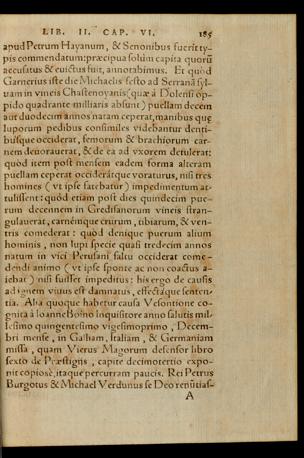 LIB. II. CAP. VI. 185
apud Petrum Hayanum, & Senonibus fuerit ty-
pis commendatum: præcipua solùm capita quorũ
accusatus & euictus fuit, annotabimus. Et quòd
Garnerius iste die Michaelis festo ad Serranã syl-
uam in vineis Chastenoyanis (quæ à Dolensi op-
pido quadrante milliaris absunt) puellam decem
aut duodecim annos natam ceperat, manibus quę
luporum pedibus consimiles videbantur denti-
busque occiderat, femorum & brachiorum car-
nem deuorauerat, & de ea ad vxorem detulerat:
quòd item post mensem eadem forma alteram
puellam ceperat occiderátque voraturus, nisi tres
homines (vt ipse fatebatur) impedimentum at-
tulissent: quòd etiam post dies quindecim pue-
rum decennem in Gredisanorum vineis stran-
gulauerat, carnémque crurum, tibiarum, & ven-
tris comederat: quòd denique puerum alium
hominis, non lupi specie quasi tredecim annos
natum in vici Perusani saltu occiderat come-
dendi animo (vt ipse sponte ac non coactus a-
iebat) nisi fuisset impeditus: his ergo de causis
ad ignem viuus est damnatus, effectáque senten-
tia. Alia quoque habetur causa Vesontione co-
gnita à Ioanne Boino inquisitore anno salutis mil-
lesimo quingentesimo vigesimoprimo, Decem-
bri mense, in Galliam, Italiam, & Germaniam
missa, quam Vierus Magorum defensor libro
sexto de Præstigiis, capite decimotertio expo-
nit copiosè, itaque percurram paucis. Rei Petrus
Burgotus & Michael Verdunus se Deo renũtias-
A